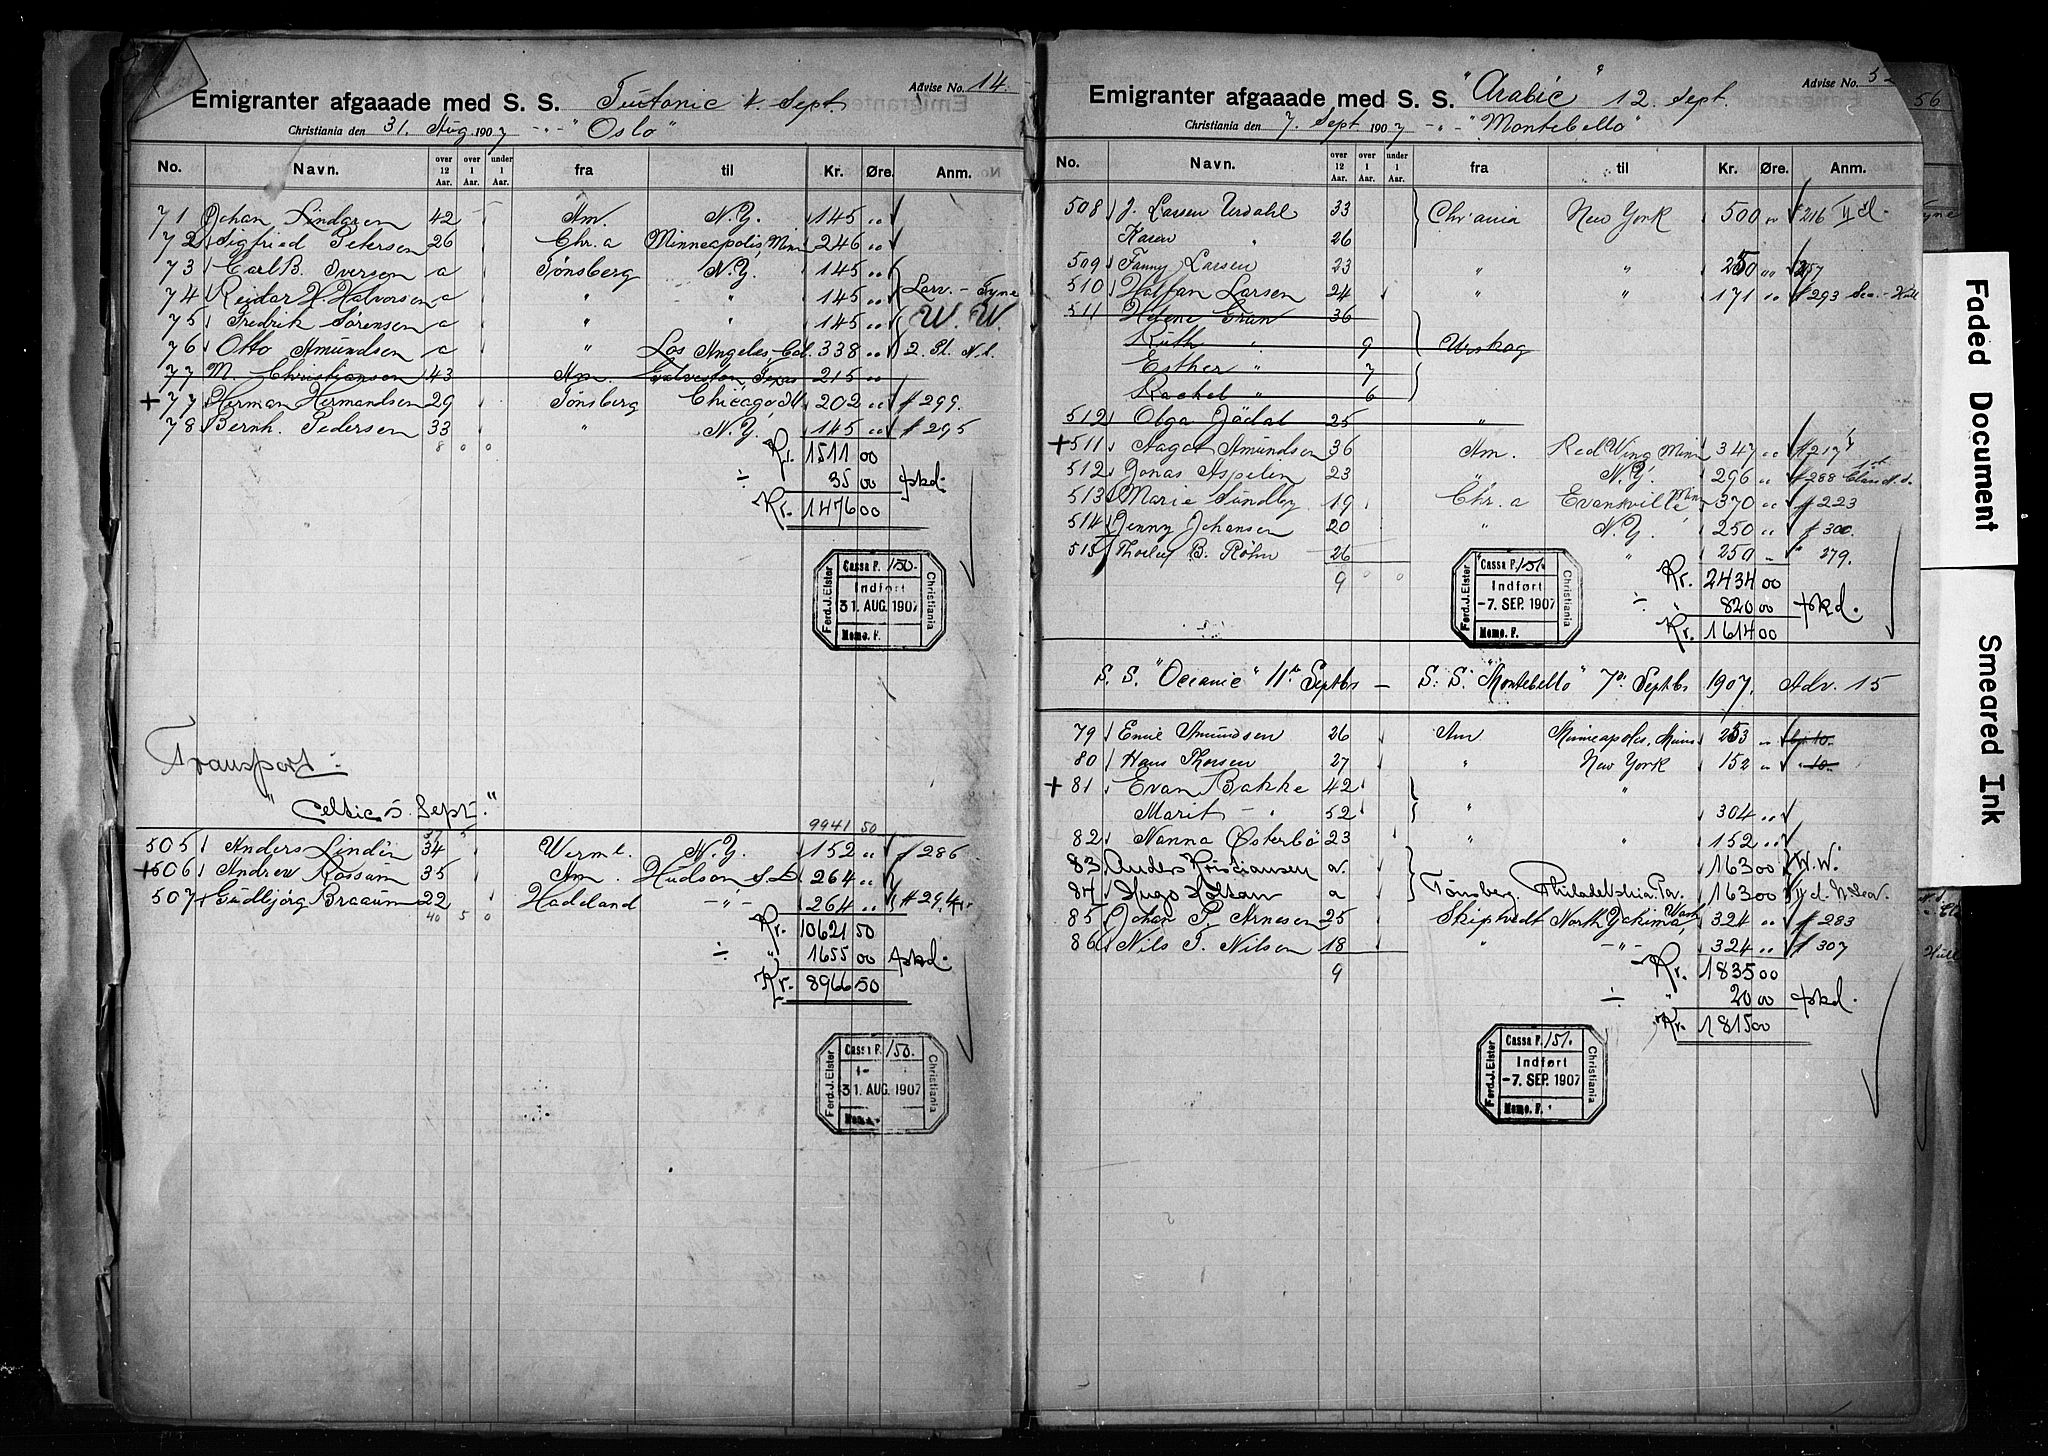 Advise No. 14.
Emigranter afgaaade med S. S. Teutonic 4. Sept
Christiania den 31. Aug 1907 -"- "Oslo"
No. Navn. over 12 Aar. over 1 Aar. under 1 Aar. fra til Kr. Øre. Anm.
71 Johan Lindgren 42 Am. N.Y. 145 "
72 Sigfried Petersen 26 Chr.a Minneapolis, Minn 246 "
73 Carl B. Iversen a Tønsberg N.Y. 145 "
74 Reidar H. Halvorsen a " " 145 " Larv. - Tyne
75 Fredrik Sørensen a " " 145 " W. W.
76 Otto Amundsen a " Los Angeles, Cal. 338 " 2. Pl. N.l.
77 M. Christjansen 43 Am. Galveston, Texas 215 "
+ 77 Herman Hermandsen 29 Tønsberg Chicago Ill 202 " # 299.
78 Bernh. Pedersen 33 " N.Y. 145 " # 295
8 0 0 Kr. 1511 00
÷ 35 00 fskd.
Kr. 1476 00
Ferd. J. Elster Cassa F. 150. Indført 31. AUG. 1907 Memo. F. Christiania
Transport:
"Celtic 5. Sept."
37 5 9941 50
505 Anders Lindén 34 Werml. N.Y. 152 " # 286
+506 Andrew Rossum 35 Am. Hudson S.D. 264 "
507 Gudbjørg Braaum 22 Hadeland -"- 264 " # 294
40 5 0 Kr. 10621 50
÷ " 1655 00 fskd.
Kr. 8966 50
Ferd. J. Elster Cassa F. 150. 31 AUG. 1907 Christiania
Advise No. 5
56
Emigranter afgaaade med S. S. "Arabic" 12 Sept.
Christiania den 7. Sept 1907 -"- "Montebello"
No. Navn. over 12 Aar. over 1 Aar. under 1 Aar. fra til Kr. Øre. Anm.
508 J. Larsen Urdahl 33 Chr'ania New York 500 " # 216 II d.
Karen " 26
509 Fanny Larsen 23 " " 250 " 257
510 Halfdan Larsen 24 " " 171 " # 293 Sea. - Hull
511 Helene Gran 36
Ruth " 9 Urskog
Esther " 7
Rachel " 6
512 Olga Jødal 25 "
+511 Aagot Amundsen 36 Am. Red Wing Minn 347 " # 217
512 Jonas Aspelen 23 " N.Y. 296 " # 288 1st Class
513 Marie Sundby 19 Chr.a Evansville Minn 370 " # 223
514 Jenny Johansen 20 " N.Y. 250 " # 300.
515 Thorley B. Røhn 26 " 250 - " 279.
9 " " Kr. 2434 00
÷ 820 00 fskd.
Kr. 1614 00
Ferd. J. Elster Cassa F. 151. Indført -7. SEP. 1907 Memo. F. Christiania
S. S. "Oceanic" 11te Septbs - S. S. "Montebello" 7de Septbs 1907. Adv. 15
79 Emil Amundsen 26 Am Minneapolis, Minn 253 "
80 Hans Thorsen 27 " New York 152 " " 10.
+ 81 Evan Bakke 42 "
Marit - " 52 " 304 "
82 Nanna Østerbö 23 " " 152 "
83 Anders Kristiansen a. 163 00 W. W.
84 Hugo Holtan a Tønsberg Philadelphia Pa. 163 00
85 Johan P. Arnesen 25 Skiptvedt North Yakima, Wash 324 " # 283
86 Nils T. Nilsen 18 " -"- 324 " # 307
9 Kr. 1835 00
÷ " 20 00 fskd.
Kr. 1815 00
Ferd. J. Elster Cassa F. 151. Indført -7. SEP. 1907 Memo. F. Christiania
Faded Document
Smeared Ink